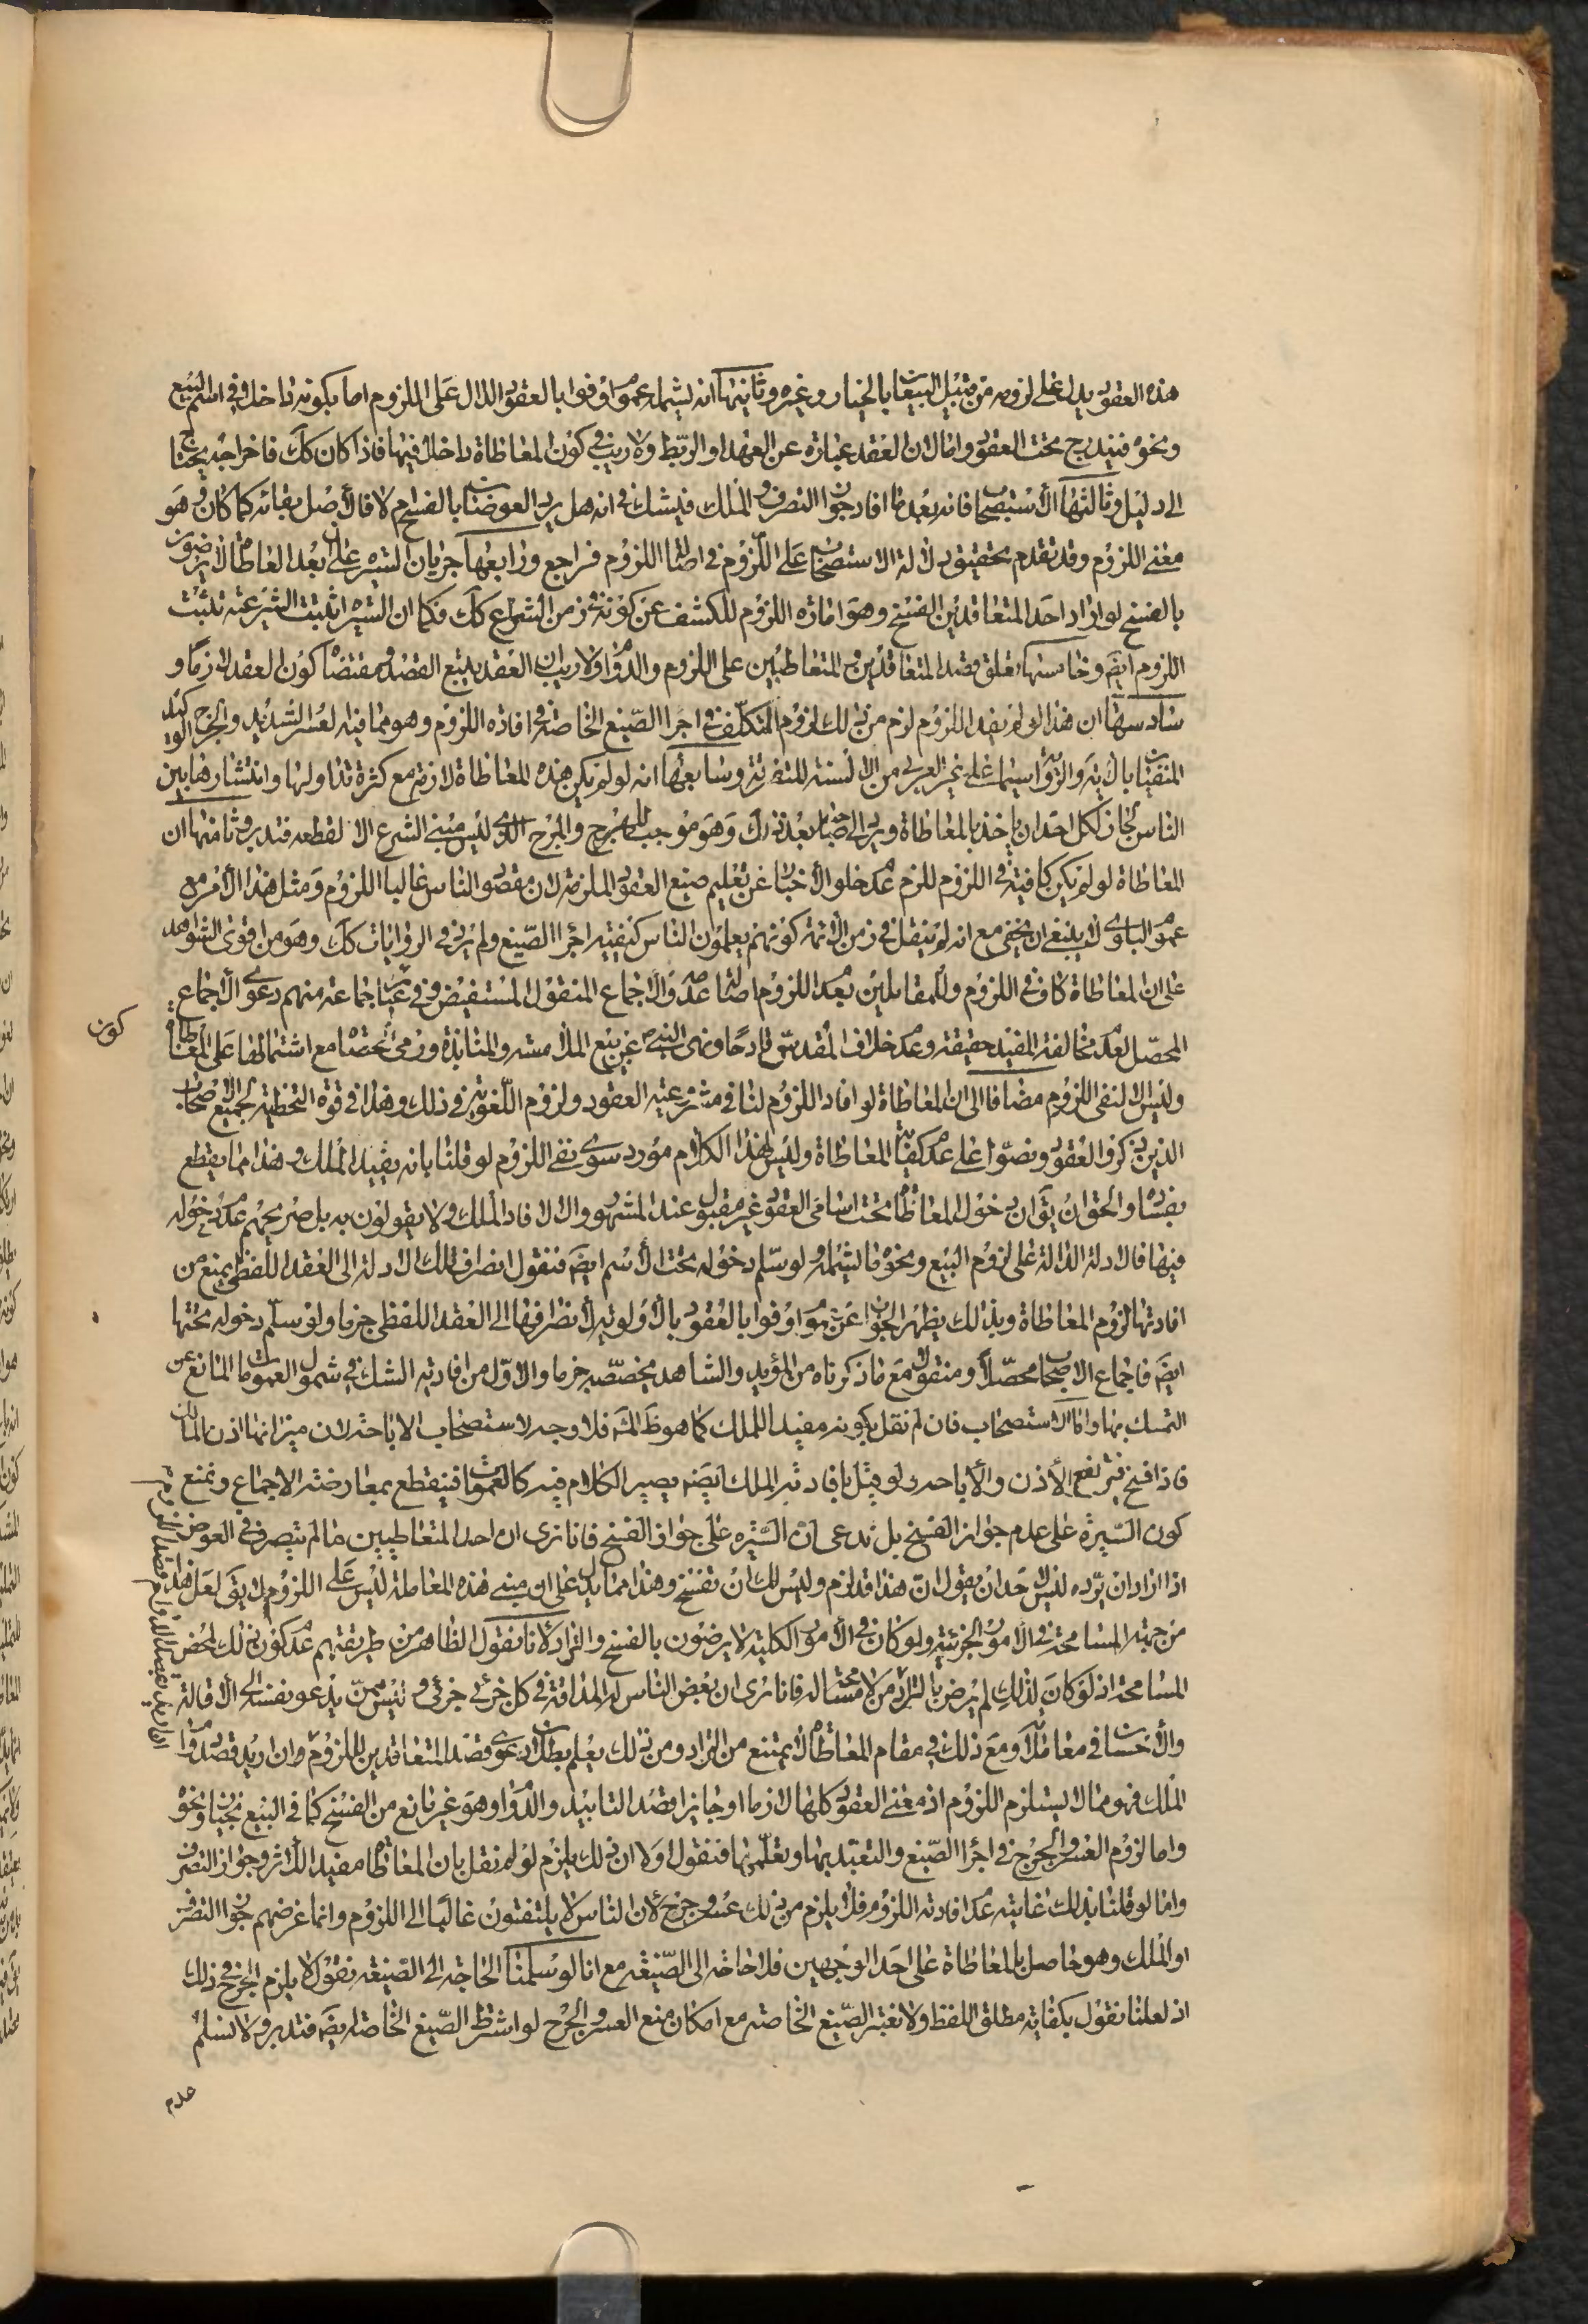 هذه العقود يدل على لزومه من قبيل البيعان بالخيار وغيره وثانيها انه يشمله عموم اوفوا بالعقود الدال على اللزوم اما بكونه داخلا في اسم البيع
ونحوه فيندرج تحت العقود واما لان العقد عبارة عن العهد او الربط ولا ريب في كون المعاطاة داخلا فيها فاذا كان كك فاخراجه يحتاج
الى دليل وثالثها الاستصحاب فانه بعد ما افاد جواز التصرف او الملك فيشك في انه هل يرد العوضان بالفسخ ام لا فالاصل بقائه كما كان وهو
معنى اللزوم وقد تقدم تحقيق دلالة الاستصحاب على اللزوم في اصالة اللزوم فراجع ورابعها جريان السيرة على ان بعد المعاطاة لا يرضون
بالفسخ لو اراد احد المتعاقدين الفسخ وهو امارة اللزوم للكشف عن كونه في زمن الشراع كك فكما ان السيرة اثبتت الشرعية تثبت
اللزوم ايضه وخامسها تعلق قصد المتعاقدين والمتعاطيين على اللزوم والدوام ولا ريب ان العقد يتبع القصد ومقتضاه كون العقد لازما و
سادسها ان هذا لو لم يفد اللزوم لزم من ذلك لزوم التكلف في اجراء الصيغ الخاصة في افادة اللزوم وهو مما فيه العسر الشديد والحرج الوكيد
المنفيان بالاية والرواية سيما على غير العربي من الالسنة المتفرقة وسابعها انه لو لم يكن هذه المعاطاة لازمة مع كثرة تداولها وانتشارها بين
الناس لجاز لكل احد ان ياخذ بالمعاطاة ويرد الى صاحبه بعد ذلك وهو موجب للهرج والمرج الذي ليس مبنى الشرع الا لقطعه فتدبر وثامنها ان
المعاطاة لو لم يكن كافية في اللزوم للزم عدم خلو الاخبار عن تعليم صيغ العقود الملزمة لان مقصود الناس غالبا اللزوم ومثل هذا الامر مع
عموم البلوى لا ينبغي ان يخفى مع انه لم ينقل في زمن الائمة كونهم يعلمون الناس كيفية اجراء الصيغ ولم يرد في الروايات كك وهو من اقوى الشواهد
على ان المعاطاة كاف في اللزوم وللمقابلين بعدم اللزوم اصالة عدمه والاجماع المنقول المستفيض وفي عبارة جماعة منهم دعوى الاجماع
المحصل لعدم مخالفة المفيد حقيقة وعدم خلاف المقدس قادحا ونهى النبي ص عن بيع الملامسة والمنابذة ورمي الحصاة مع اشتمالها على المعاطاة
وليس الا لنفى اللزوم مضافا الى ان المعاطاة لو افاد اللزوم لنا في مشروعية العقود ولزوم اللغوية في ذلك وهذا في قوة التخطئة لجميع الاصحاب
الذين ذكروا العقود ونصوا على عدم كفاية المعاطاة وليس لهذا الكلام مورد سوى نفى اللزوم لو قلنا بانه يفيد الملك وهذا مما يقطع
بفساده والحق ان يق ان دخول المعاطاة تحت اسامى العقود غير مقبول عند المشهور والا لافاد الملك ولا يقولون به بل صريحهم عدم دخوله
فيها فالادلة الدالة على لزوم البيع ونحوه لا يشمله ولو سلم دخوله تحت الاسم ايضه فنقول انصراف تلك الادلة الى العقد اللفظي يمنع من
افادتها لزوم المعاطاة وبذلك يظهر الجواب عن عموم اوفوا بالعقود بالاولوية لانصرافها الى العقد اللفظي جزما ولو سلم دخوله تحتها
ايضه فاجماع الاصحاب محصلا ومنقولا مع ما ذكرناه من المؤيد والشاهد يخصصه جزما والاول من افادته الشك في شمول العمومات المانع عن
التمسك بها واما الاستصحاب فان لم نقل بكونه مفيدا للملك كما هوظ المشه فلا وجه لاستصحاب الاباحة لان ميزانها اذن المالك
فاذا فسخ فيرتفع الاذن والاباحة ولو قيل بافادته الملك ايضه يصير الكلام فيه كالعمومات فينقطع بمعارضته الاجماع ونمنع
كون السيرة على عدم جواز الفسخ بل ندعى ان السيرة على جواز الفسخ فانا نرى ان احد المتعاطيين ما لم يتصرف في العوض
اذا اراد ان يرده ليس لاحد ان يقول ان هذا قد لزم وليس لك ان تفسخ وهذا مما يدل على ان مبنى هذه المعاملة ليس على اللزوم لا يق لعل هذا
من جهة المسامحة في الامور الجزئية ولو كان في الامور الكلية لا يرضون بالفسخ والتراد لانا نقول الظاهر من طريقتهم عدم كون ذلك لمحض
المسامحة اذ لو كان لذلك لم يرض بالتراد من لا مسامحة له فانا نرى ان بعض الناس له المداقة في كل جزئي جزئي وليس ممن يدعو نفسه الى الاقالة
والاحسان في معاملة ومع ذلك في مقام المعاطاة لا يمتنع من التراد ومن ذلك يعلم بطلان دعوى قصد المتعاقدين اللزوم وان اريد قصد دوام
الملك فهو مما لا يستلزم اللزوم اذ معنى العقود كلها لازما او جايزا قصد التابيد والدوام وهو غير مانع من الفسخ كما في البيع بخيار ونحوه
واما لزوم العسر والحرج في اجراء الصيغ والتعبد بها وتعلمها فنقول اولا ان ذلك يلزم لو لم نقل بان المعاطاة مفيد الاثر وجواز التصرف
واما لو قلنا بذلك غايته عدم افادته اللزوم فلا يلزم من ذلك عسر وحرج لان الناس لا يلتفتون غالبا الى اللزوم وانما غرضهم جواز التصرف
او الملك وهو حاصل بالمعاطاة على احد الوجهين فلا حاجة الى الصيغة مع انا لو سلمنا الحاجة الى الصيغة نقول لا يلزم الحرج في ذلك
اذ لعلنا نقول بكفاية مطلق اللفظ ولا نعتبر الصيغ الخاصة مع امكان منع العسر والحرج لو اشترط الصيغ الخاصة ايضه فتدبر ولا نسلم
عدم
كون